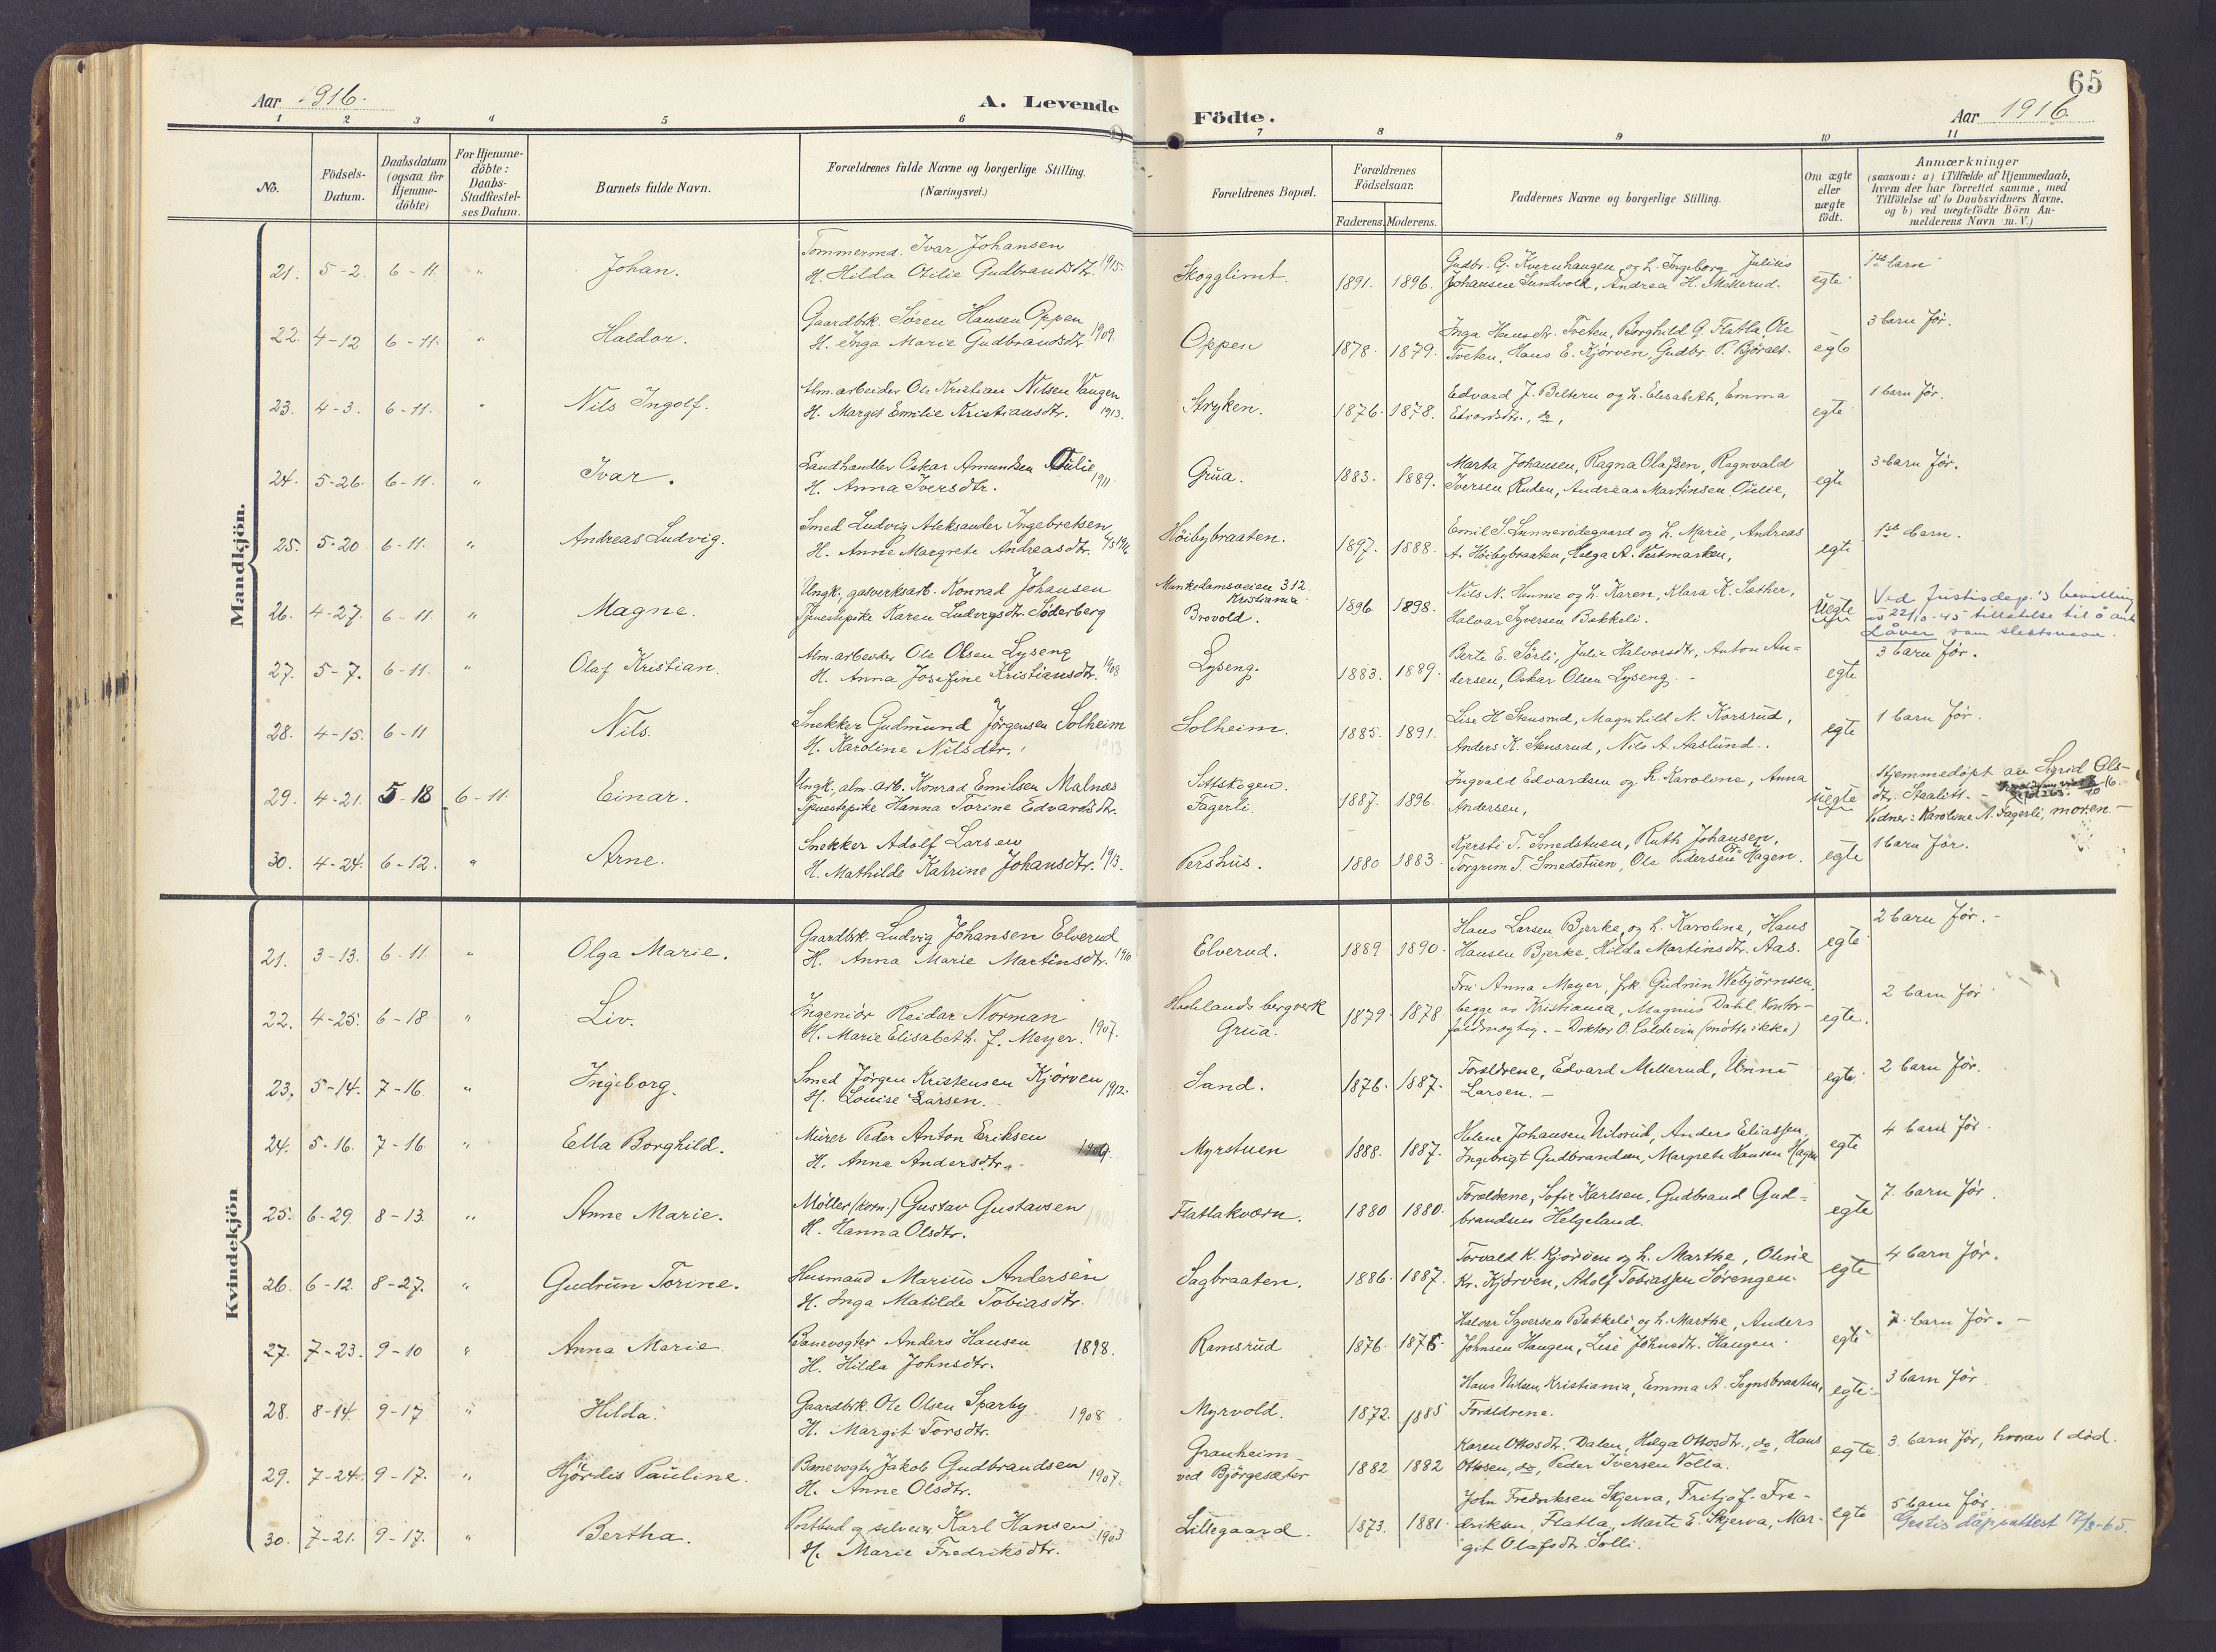 65
Aar 1916.
A. Levende
Födte.
Aar 1916
1 2 3 4 5 6 7 8 9 10 11
No.
Födsels-
Datum.
Daabsdatum
(ogsaa for
Hjemme-
döbte)
For Hjemme-
döbte:
Daabs-
Stadfæstel-
ses Datum.
Barnets fulde Navn.
Forældrenes fulde Navne og borgerlige Stilling.
(Næringsvei.)
Forældrenes Bopæl.
Forældrenes
Födselsaar.
Faderens. Moderens.
Faddernes Navne og borgerlige Stilling.
Om ægte
eller
uægte
födt.
Anmærkninger
(saasom: a) i Tilfælde af Hjemmedaab,
hvem der har forrettet samme, med
Tilföielse af to Daabsvidners Navne.
og b) ved uægtefödte Börn An-
melderens Navn m. V.)
Mandkjön.
Tommermd. Ivar Johansen
21. 5-2. 6-11. " Johan. H. Hilda Otilie Gudbrandsdtr. 1915.
Skogglimt. 1891. 1896.
Gudbr. G. Kvernhaugen og h. Ingeborg, Julius
Johansen Sundvold, Andrea H. Mellerud. egte 1ste barn
Gaardbrk. Sören Hansen Oppen
22. 4-12 6-11. " Haldor. H. Inga Marie Gudbrandsdtr. 1909.
Oppen 1878. 1879.
Inga Hansdtr. Tveten, Borghild G. Flatla, Ole
Tveten, Hans E. Kjörven, Gudbr. P. Björalt. egte 3 barn för.
Alm. arbeider Ole Kristian Nilsen Vangen
23. 4-3. 6-11. " Nils Ingolf. H. Margit Emilie Kristiansdtr. 1913.
Stryken. 1876. 1878.
Edvard J. Beltern og h. Elisabeth, Emma
Edvardsdtr., do, egte 1 barn för.
Landhandler Oskar Amundsen Oulie
24. 5-26. 6-11. " Ivar. H. Anna Iversdtr. 1911.
Grua. 1883. 1889.
Marta Johansen, Ragna Olafsen, Ragnvald
Iversen Ruden, Andreas Martinsen Oulie, egte 3 barn för.
Smed Ludvig Aleksander Ingebretsen
25. 5-20. 6-11. " Andreas Ludvig. H. Anne Margrete Andreasdtr.
Höibybraaten. 1897. 1888.
Emil S Lunnerödegaard og h. Marie, Andreas
A. Höibybraaten, Helga A. Vestmarken, egte 1ste barn.
Ungk., gasverksarb. Konrad Johansen
26. 4-27. 6-11. " Magne. Tjenestepike Karen Ludvigsdtr. Söderberg
Munkedamsveien 312
Kristiania
Brovold. 1896 1898.
Nils N. Hunne og h. Karen, Klara K. Sæther,
Halvor Syversen Bakkeli. Uegte
Ved Justisdep.'s bevilling
22/10-45 tillatelse til å anta
Låver som slektsnavn.
Alm. arbeider Ole Olsen Lyseng
27. 5-7. 6-11. " Olaf Kristian. H. Anna Josefine Kristiansdtr. 1908
Lyseng. 1883. 1889.
Berte E. Sörli, Julie Halvorsdtr, Anton An-
dersen, Oskar Olsen Lyseng. - egte 3 barn för.
Snekker Gudmund Jörgensen Solheim
28. 4-15. 6-11 Nils. H. Karoline Nilsdtr. 1913
Solheim. 1885. 1891.
Lise H Stensrud, Magnhild N. Korsrud,
Anders K. Stensrud, Nils A. Aaslund. egte 1 barn för.
Ungk., alm. arb. Konrad Emilsen Malnes
29. 4-21. 5-18 6-11. Einar. Tjenestepike Hanna Torine Edvardsdtr.
Sittskogen.
Fagerli. 1887. 1896.
Ingvald Edvardsen og h. Karoline, Anna
Andersen, Uegte
Hjemmedöpt av Sigrid Ols-
dtr. Staalitt. -
Vidner: Karoline A. Fagerli, moren -
Snekker Adolf Larsen
30. 4-24. 6-12. " Arne. H. Mathilde Katrine Johansdtr. 1913.
Pershus. 1880 1883.
Kjersti T. Smedstuen, Ruth Johansen,
Torgrim T. Smedstuen, Ole Pedersen Hagen. egte 1 barn för.
Kvindekjön
Gaardbrk. Ludvig Johansen Elverud
21. 3-13. 6-11. " Olga Marie. H. Anna Marie Martinsdtr. 1910.
Elverud. 1889 1890.
Hans Larsen Bjerke og h. Karoline, Hans
Hansen Bjerke, Hilda Martinsdtr. Aas. egte 2 barn för. -
Ingeniör Reidar Norman
22. 4-25. 6-18 " Liv. H. Marie Elisabeth f. Meyer. 1907.
Hadelands bergverk
Grua. 1879. 1878.
Fru Anna Meyer, frk. Gudrun Webjörnsen,
begge av Kristiania, Magnus Dahl, kontor-
fuldmægtig. - Doktor O. Coldevin (mötte ikke) egte. 2 barn för
Smed Jörgen Kristensen Kjörven
23. 5-14. 7-16. " Ingeborg. H. Louise Larsen. 1912.
Sand. 1876. 1887.
Forældrene, Edvard Mellerud, Unni
Larsen. - egte 2 barn för.
Murer Peder Anton Eriksen
24. 5-16. 7-16 " Ella Borghild. H. Anna Andersdtr. 1909.
Myrstuen 1888. 1887.
Helene Johansen Nilsrud, Anders Eliassen,
Ingebrigt Gudbrandsen, Margrete Hansen Hagen egte 4 barn för.
Möller (korn.) Gustav Gustavsen
25. 6-29. 8-13. " Anne Marie. H. Hanna Olsdtr. 1901
Flatlakværn. 1880 1880.
Forældrene, Sofie Karlsen, Gudbrand Gud-
brandsen Helgeland. egte 7 barn för.
Husmand Marius Andersen
26. 6-12. 8-27. " Gudrun Torine. H. Inga Matilde Tobiasdtr. 1906
Sagbraaten. 1886. 1887.
Torvald K. Kjörven og h. Marthe, Oline
Kr. Kjörven, Adolf Tobiassen Sörengen. egte 4 barn för.
Banevogter Anders Hansen
27. 7-23. 9-10 " Anna Marie H. Hilda Johnsdtr. 1898.
Ramsrud 1876. 1875.
Halvor Syversen Bakkeli og h. Marthe, Anders
Johnsen Haugen, Lise Johnsdtr. Haugen. egte 7. barn för. -
Gaardbrk. Ole Olsen Sparby
28. 8-14. 9-17 " Hilda. H. Margit Torsdtr. 1908.
Myrvold. 1872. 1885
Hans Nilsen, Kristiania, Emma A. Sognsbraaten,
Forældrene. egte 3 barn för.
Banevogter Jakob Gudbrandsen
29. 7-24. 9-17. " Hjördis Pauline. H. Anne Olsdtr. 1907.
Granheim
ved Björgesæter 1882 1882
Karen Ottosdtr. Dalen, Helga Ottosdtr., do, Hans
Ottosen, do, Peder Iversen Volla. egte 3. barn för, hvorav 1 död.
Postbud og selveier Karl Hansen
30. 7-21. 9-17. " Bertha. H. Marie Fredriksdtr. 1903
Lillegaard. 1873. 1881.
John Fredriksen Skjerva, Fritjof Fre-
driksen, Flatla, Marte E. Skjerva, Mar-
git Olafsdtr. Solli. egte 5 barn för.
Gratis dåpsattest 17/3-65.